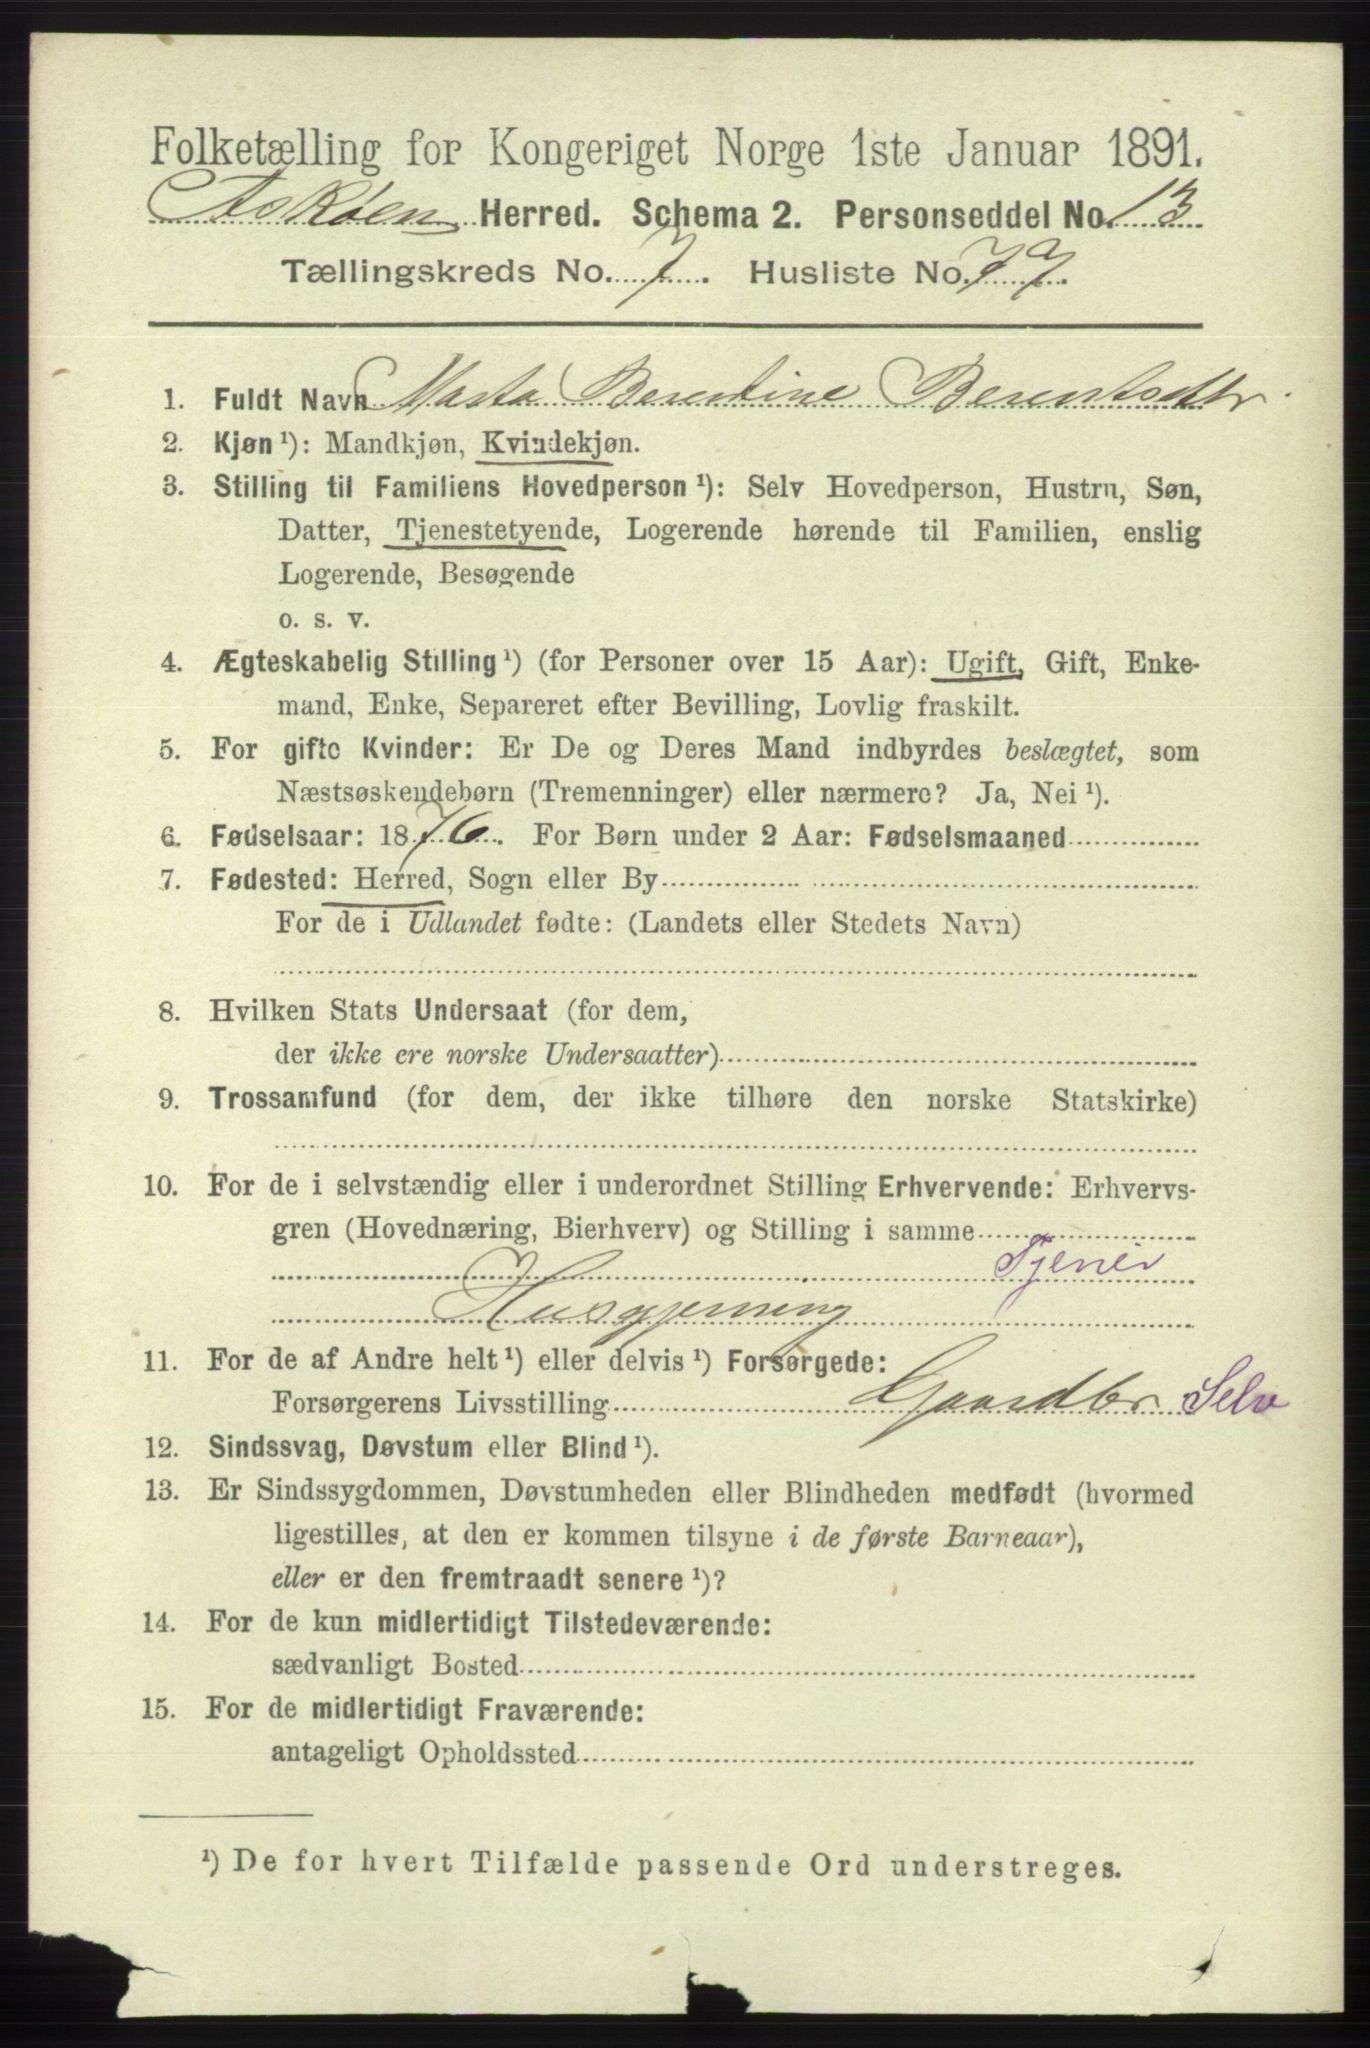 Folketælling for Kongeriget Norge 1ste Januar 1891.
Askøen Herred. Schema 2. Personseddel No. 13
Tællingskreds No. 7. Husliste No. 77.
1. Fuldt Navn Marta Berentine Berentsdtr.
2. Kjøn ¹): Mandkjøn, Kvindekjøn.
3. Stilling til Familiens Hovedperson ¹): Selv Hovedperson, Hustru, Søn,
Datter, Tjenestetyende, Logerende hørende til Familien, enslig
Logerende, Besøgende
o. s. v.
4. Ægteskabelig Stilling ¹) (for Personer over 15 Aar): Ugift, Gift, Enke-
mand, Enke, Separeret efter Bevilling, Lovlig fraskilt.
5. For gifte Kvinder: Er De og Deres Mand indbyrdes beslægtet, som
Næstsøskendebørn (Tremenninger) eller nærmere? Ja, Nei ¹).
6. Fødselsaar: 1876. For Børn under 2 Aar: Fødselsmaaned
7. Fødested: Herred, Sogn eller By
For de i Udlandet fødte: (Landets eller Stedets Navn)
8. Hvilken Stats Undersaat (for dem,
der ikke ere norske Undersaatter)
9. Trossamfund (for dem, der ikke tilhøre den norske Statskirke)
10. For de i selvstændig eller i underordnet Stilling Erhvervende: Erhvervs-
gren (Hovednæring, Bierhverv) og Stilling i samme
Tjener
Husgjerning
11. For de af Andre helt ¹) eller delvis ¹) Forsørgede:
Forsørgerens Livsstilling Gaardbr Selv
12. Sindssvag, Døvstum eller Blind ¹).
13. Er Sindssygdommen, Døvstumheden eller Blindheden medfødt (hvormed
ligestilles, at den er kommen tilsyne i de første Barneaar),
eller er den fremtraadt senere ¹)?
14. For de kun midlertidigt Tilstedeværende:
sædvanligt Bosted
15. For de midlertidigt Fraværende:
antageligt Opholdssted
¹) De for hvert Tilfælde passende Ord understreges.